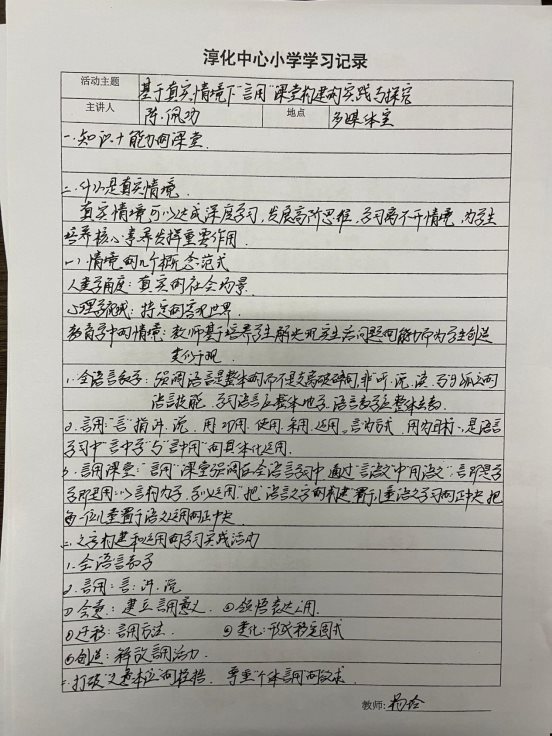 淳化中心小学学习记录
活动主题 基于真实情境下"言用"课堂构建的实践与探究
主讲人 陈佩功 地点 多媒体室
一.知识十能力的课堂.
二.什么是真实情境.
真实情境可以达成深度学习,发展高阶思维,学习离不开情境,为学生
培养核心素养发挥重要作用.
(一)情境的几个概念范式
人类学角度:真实的社会场景.
心理学领域:特定的客观世界.
教育学中的情境:教师基于培养学生解决现实生活问题的能力而为学生创造
1.全语言教学:强调语言是整体的而不是支离破碎的,非听、说、读、写孤立的
语言技能.学习语言应整体地学,语言教学应整体去教.
2.言用:"言"指讲、说.用:功用、使用、利用、运用.言为方式.用为目标,是语言
学习中"言中学"与"学中用"的具体化运用.
3.言用课堂:"言用"课堂强调在全语言学习中通过"言语文"中用语文".言即是学
学即是用,以言构为学,学以运用"把"语言文字的构建"置于儿童语文学习的正中央,把
每一位儿童置于语文运用的正中央.
三.文字构建和运用的学习实践活动
1.全语言教学
2.言用:言:讲.说
①会意:建立言用意义. ②领悟表达运用.
③迁移:言用方法. ④变化:形成稳定图式
⑤创造:释放言用活力.
打破"文遵本位"的桎梏.尊重个体言用的欲求.
教师: